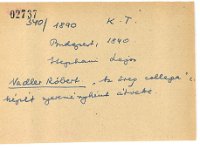 02737
340/1890 K-T
Budapest, 1890
Stephani Lajos
Nadler Róbert, "Az öreg collega"
képét nyereményként átvette.